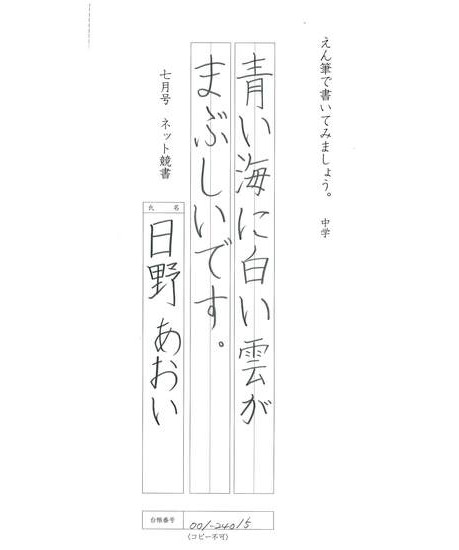 えん筆で書いてみましょう。 中学
青い海に白い雲が
まぶしいです。
七月号 ネット競書
氏名
日野 あおい
台帳番号 001-24015
(コピー不可)